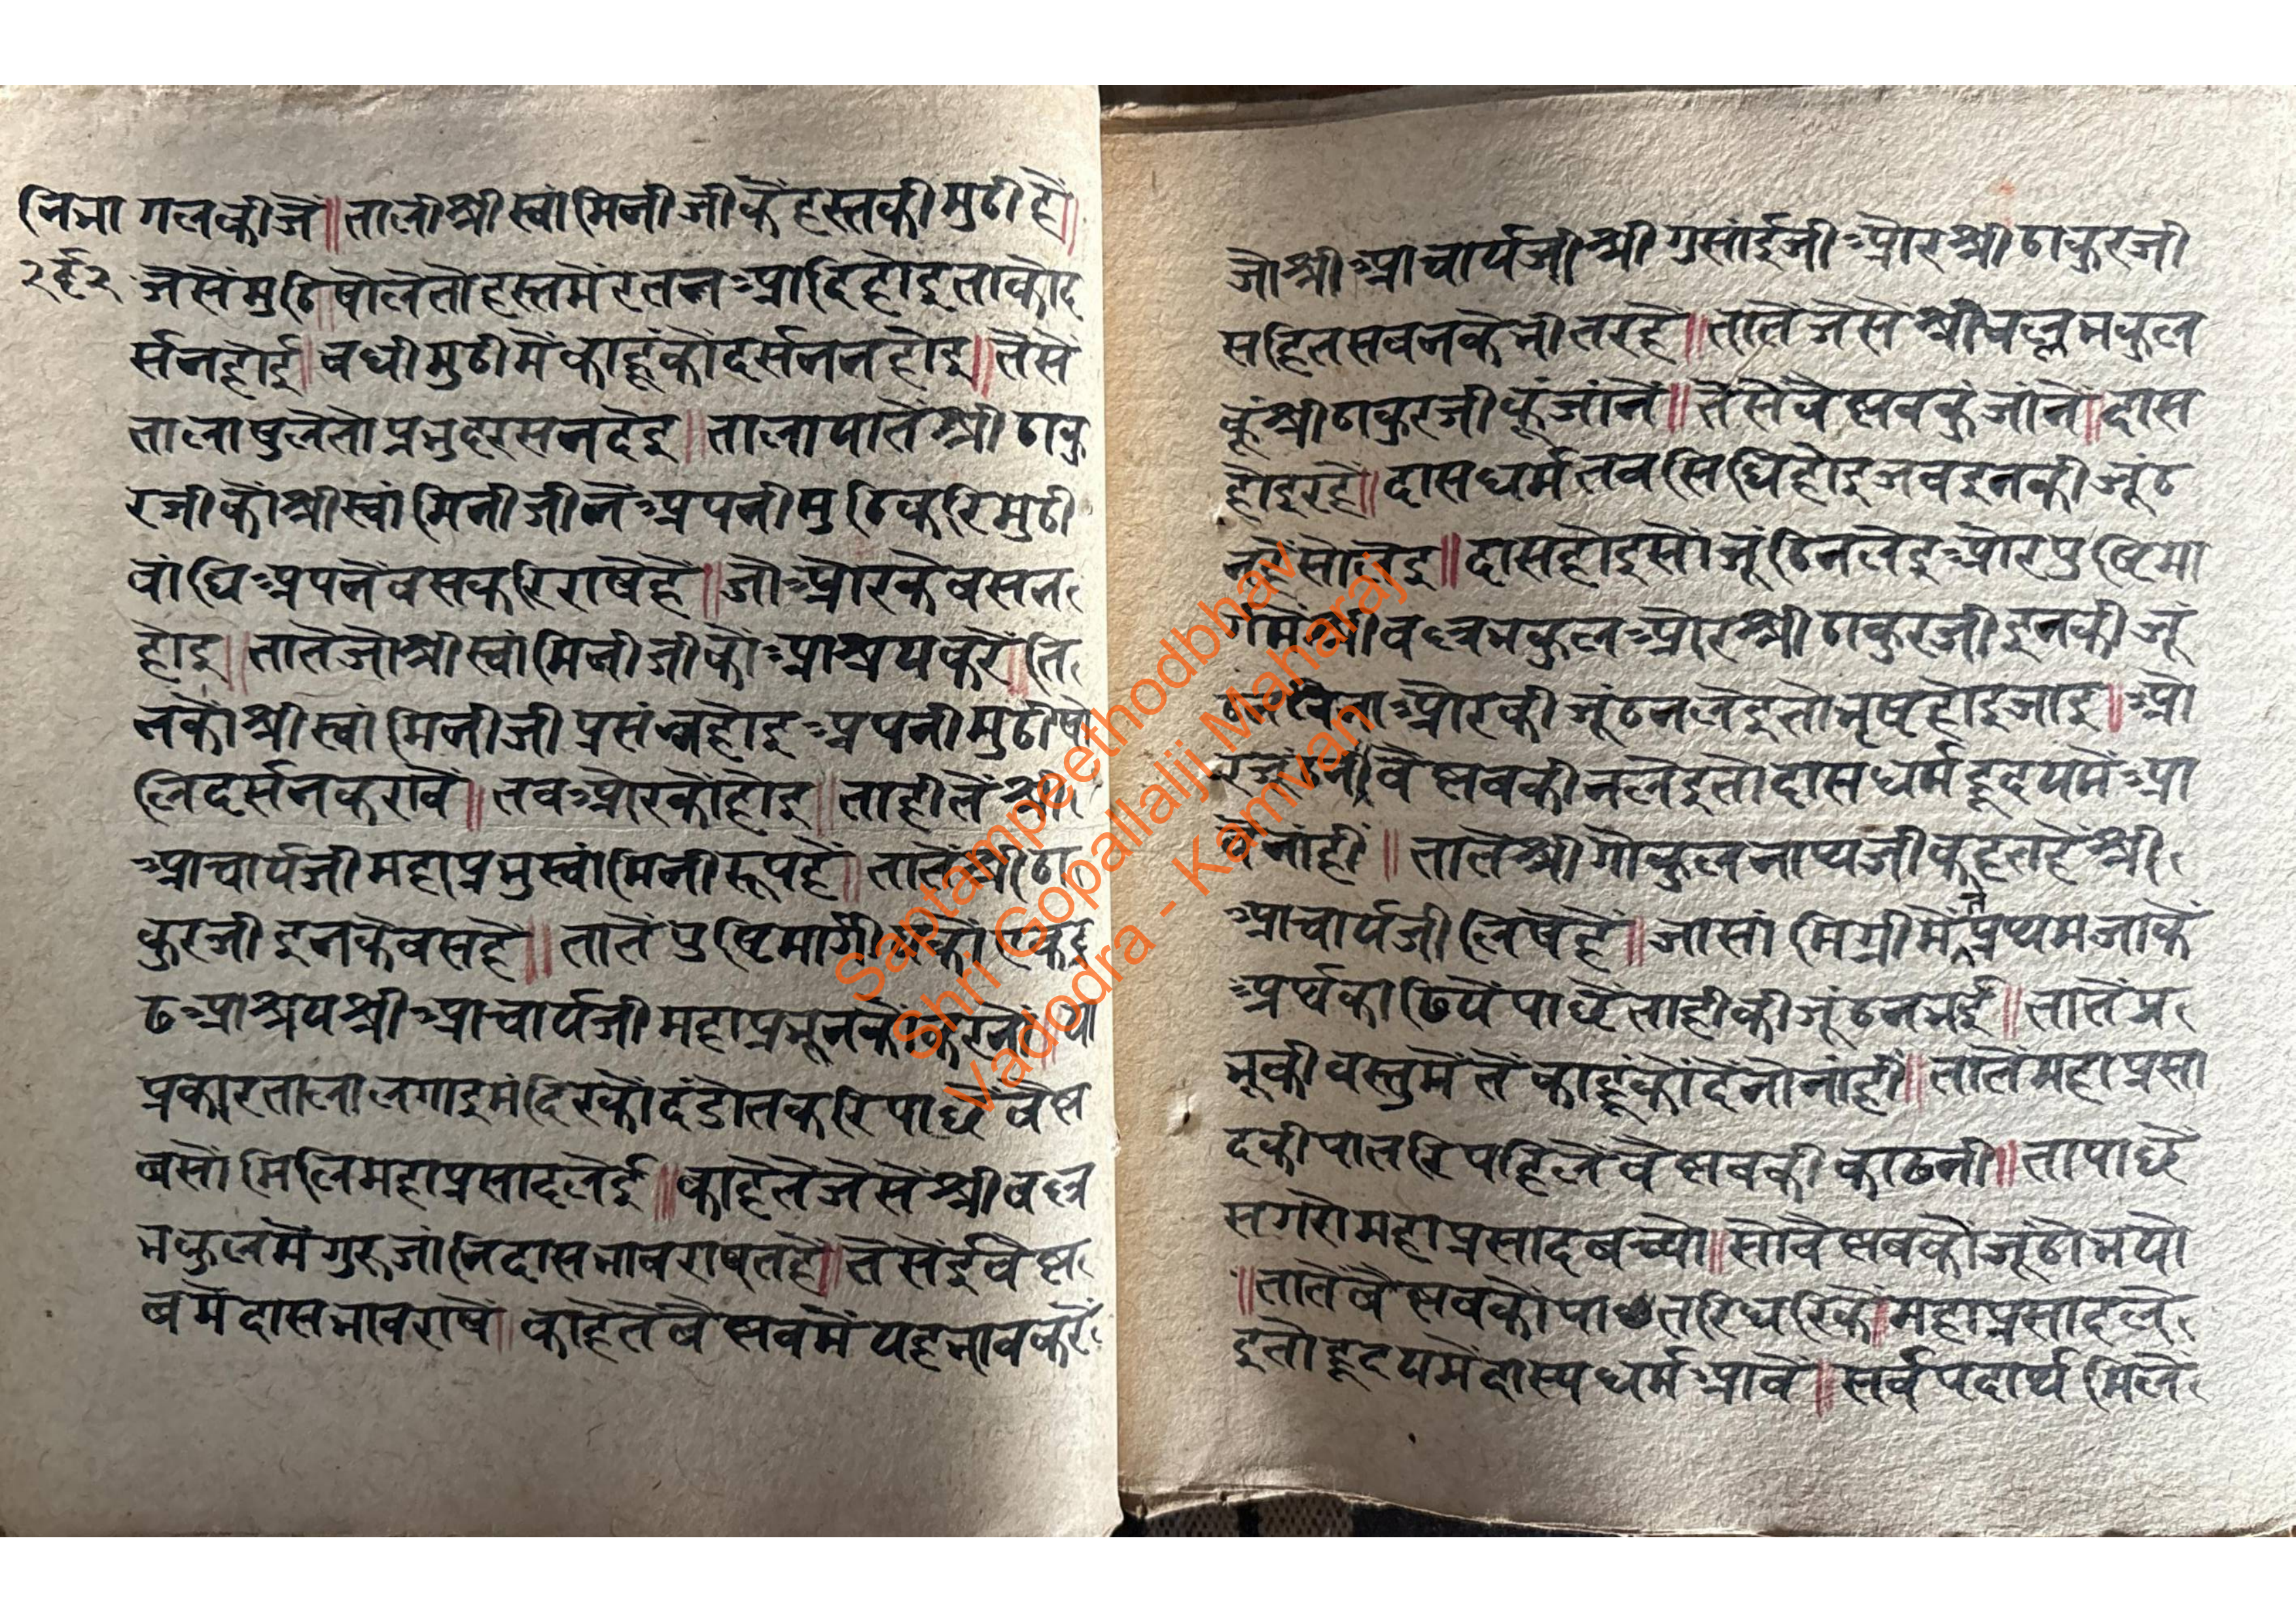 निभा गलकीजै॥ तालीश्रीस्वांमिनीजीकैहस्तकीमुठीहै॥
२६२ जैसेंमुठिषोलेतौहस्तमेंरतनआदिहोइताकोद
र्सनहोई॥ बधीमुठीमेंकाहूंकोंदर्सननहोइ॥ तैसें
तालाषुलेतोप्रभुदरसनदेइ॥ तालायातेंश्रीठाकु
रजीकोंश्रीस्वांमिनीजीनेंअपनीमुठिकरिमुठी
बांधिअपनेंबसकरिराषेहै॥ जोऔरकेबसन
होइ॥ तातेंजोश्रीस्वांमिनीजीकोआश्रयकरें॥ ति
नकोंश्रीस्वांमिनीजीप्रसंन्नहोइअपनीमुठीषो
लिदर्सनकरावैं॥ तबऔरकोंहोइ॥ ताहीतेंश्री
आचार्यजीमहाप्रभुस्वांमिनीरूपहै॥ तातेंश्रीठा
कुरजीइनकेबसहै॥ तातेंपुष्टिमार्गी
ढआश्रयश्रीआचार्यजीमहाप्रभूनकोंकरनों॥ या
प्रकारतालालगाइमंदिरकोंदंडोतकरिपाछेंबैष्ण
बसोंमिलिमहाप्रसादलेई॥ काहेतेंजैसेंश्रीवल्ल
भकुलमेंगुरूजांनिदासभावराषतहै॥ तैसेंईवैष्ण
बमेंदासभावराषें॥ काहेतेंबैष्णवमेंयहभावकरें
जोश्रीआचार्यजीश्रीगुसांईजीऔरश्रीठाकुरजी
सहितसबनकेभीतरहै॥ तातेंजैसेंश्रीवल्लभकुल
कूंश्रीठाकुरजीकूंजांनें॥ तैसेंवैष्णवकुंजांनें॥ दास
होइरहै॥ दासधर्मतबसिधिहोइजबइनकीजूंठ
नलेइ॥ दासहोइसोंजूंठिनलेइऔरपुष्टिमा
र्गमेंश्रीवल्लभकुलऔरश्रीठाकुरजीइनकीजूं
ठनबिनाऔरकीजूंठनलेइतोभृष्टहोइजाइ॥ औ
वैष्णवकीनलेइतोदासधर्महृदयमेंआ
वेंनांही॥ तातेंश्रीगोकुलनाथजीकहतहेंश्री
आचार्यजीलिषेहैं॥ जासांमिग्रीमेंतेंप्रथमजाकें
अर्थकाढियेंपाछेंताहीकीजूंठनभई॥ तातेंप्र
भूकीवस्तुमेंतेंकाहूंकोंदेंनोंनांही॥ तातेंमहाप्रसा
दकीपातरिपहिलेंवैष्णवकीकाढनी॥ तापाछें
सगरोमहाप्रसादबच्यो॥ सोवैष्णवकोंजूंठोभयो
॥ तातेंबैष्णवकोंपातरिधरिकें॥ महाप्रसादले
इतोहृदयमेंदास्यधर्मआवें॥ सर्वपदार्थमिलें